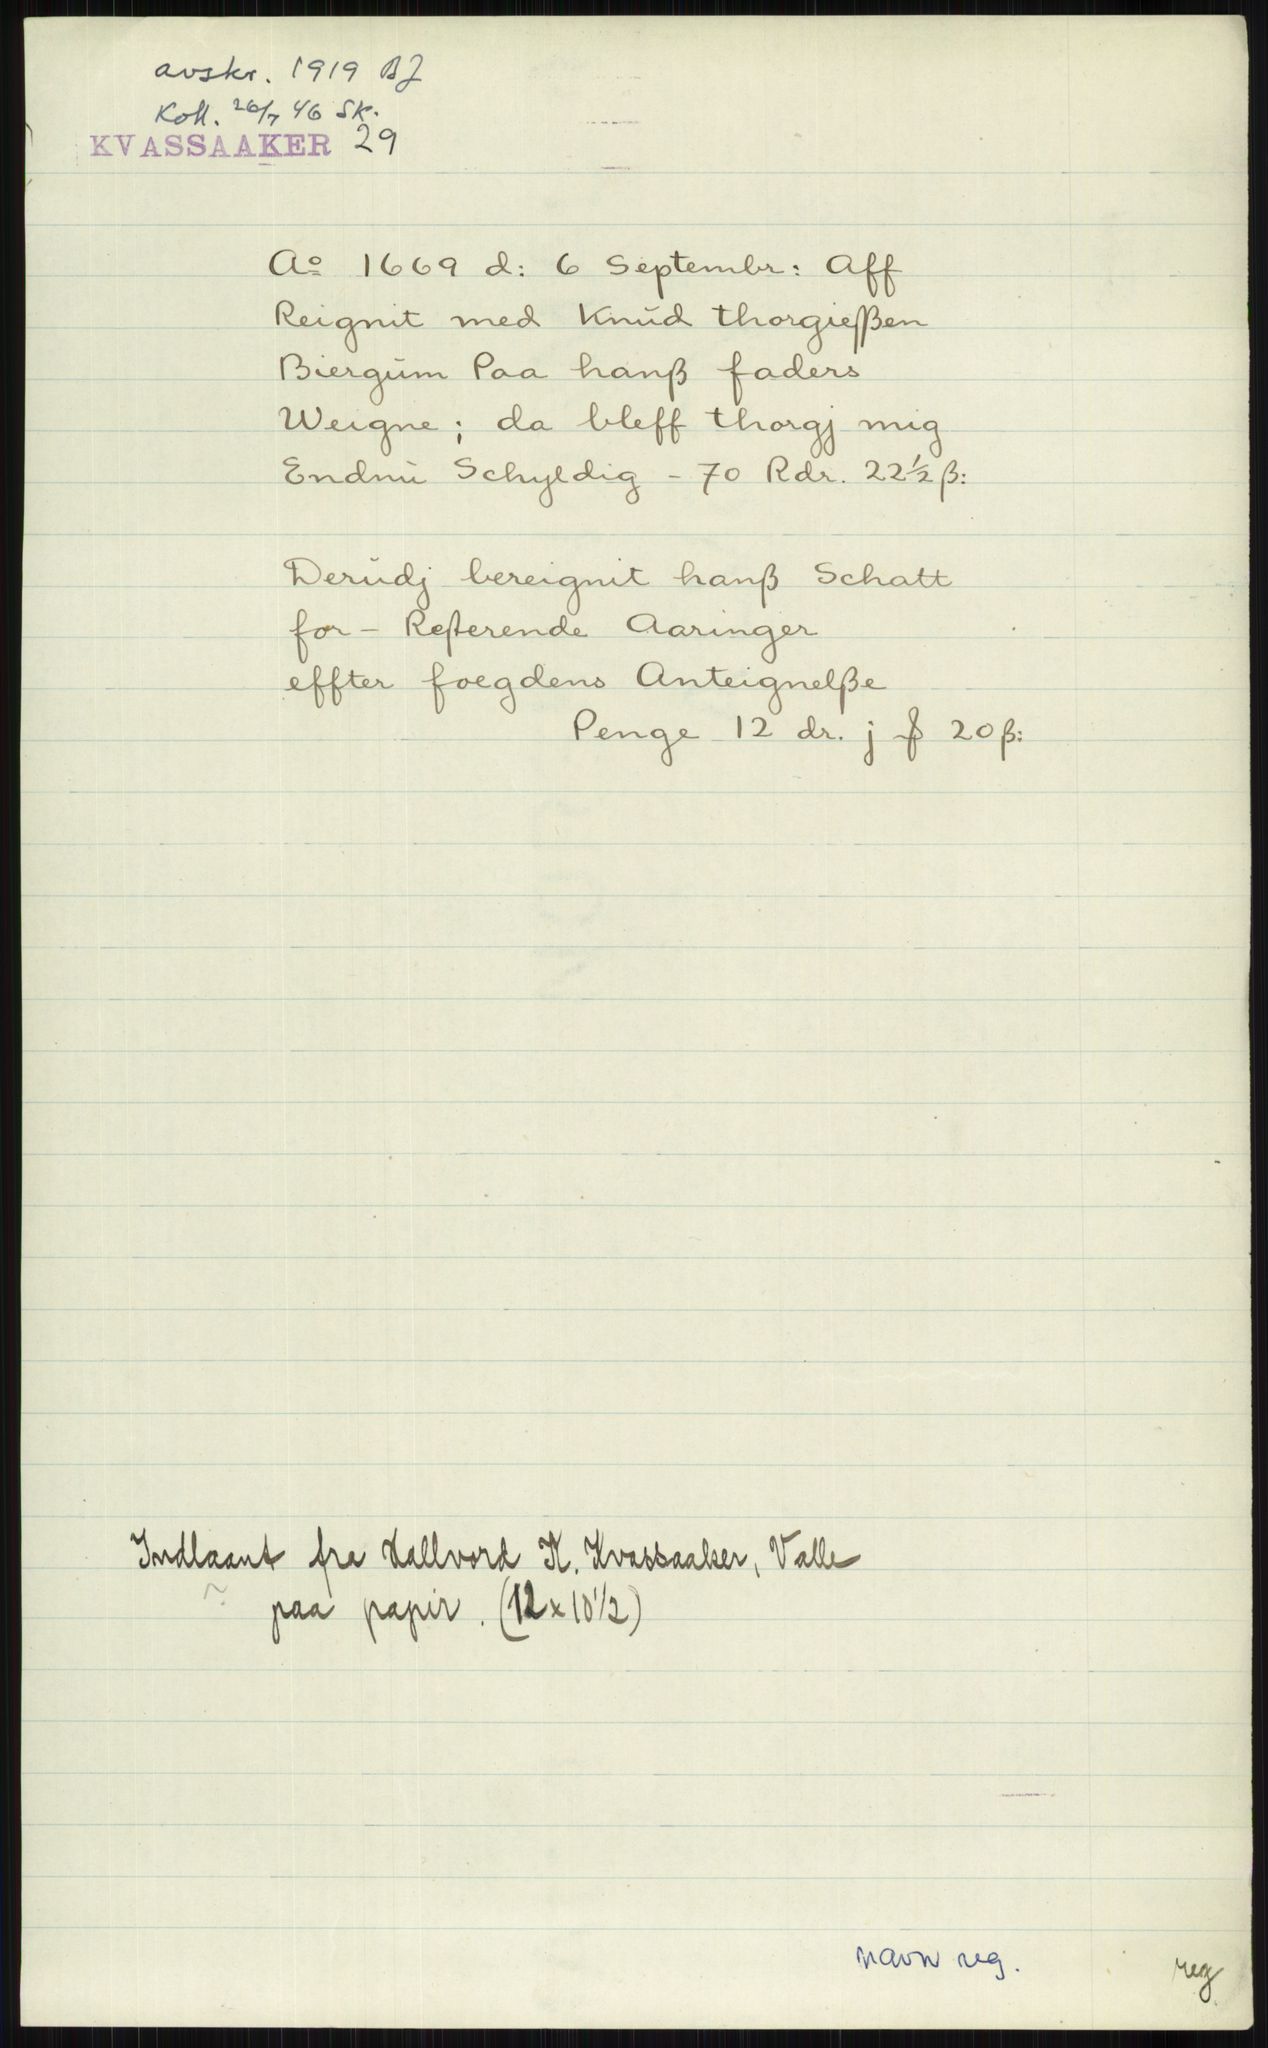 avskr. 1919 BJ
Koll. 26/7 46 SK.
KVASSAAKER 29
Ao 1669 d: 6 Septembr: Aff
Reignit med Knŭd thorgießen
Biergŭm Paa hanß faders
Weigne; da bleff thorgj mig
Endnŭ Schyldig - 70 Rdr. 22½ ß:
Derŭdj bereignit hanß Schatt
for - Resterende Aaringer
effter foegdens Anteignelße
Penge 12 dr. j 20 ß:
Indlaant fra Hallvord K. Kvassaaker, Valle
paa papir. (12 x 10 1/2)
navn reg.
reg